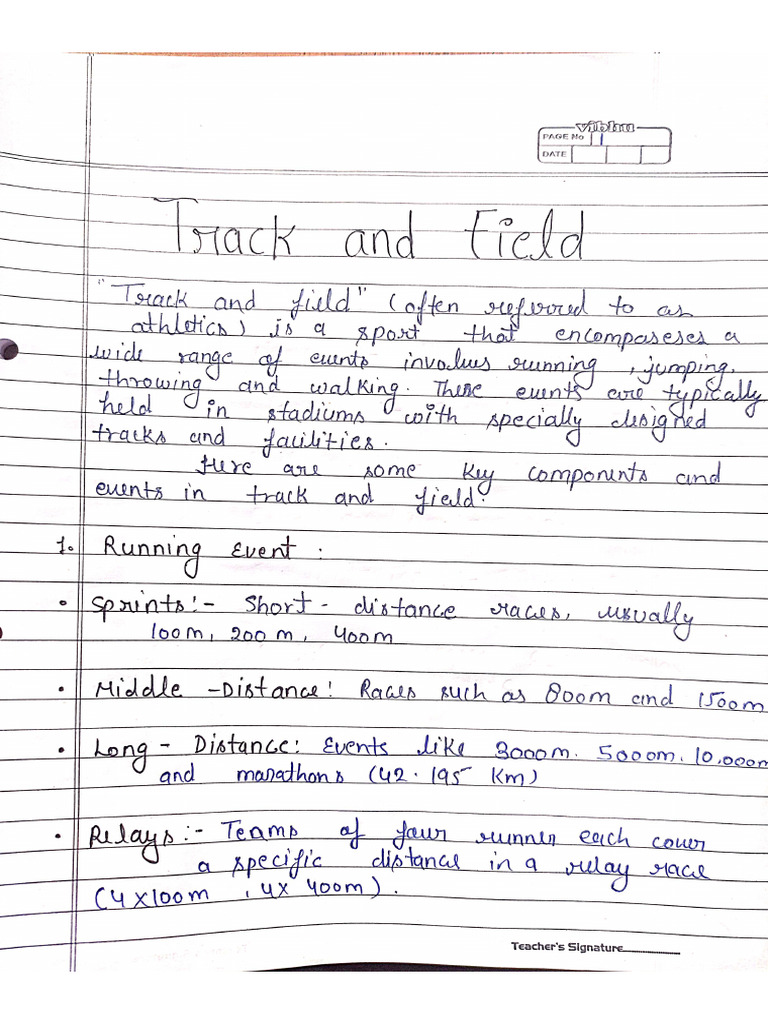 vibhu
PAGE No
DATE
Track and Field
"Track and field" (often referred to as
athletics) is a sport that encompaseses a
wide range of events involves running, jumping,
throwing and walking. These events are typically
held in stadiums with specially designed
tracks and facilities.
Here are some key components and
events in track and field:
1. Running Event :
• Sprints:- Short - distance races, usually
100m, 200m, 400m
• Middle -Distance: Races such as 800m and 1500m
• Long - Distance: Events like 3000m. 5000m. 10,000m
and marathons (42.195 Km)
• Relays:- Teams of four runner each cover
a specific distance in a relay race
(4x100m , 4x 400m).
Teacher's Signature